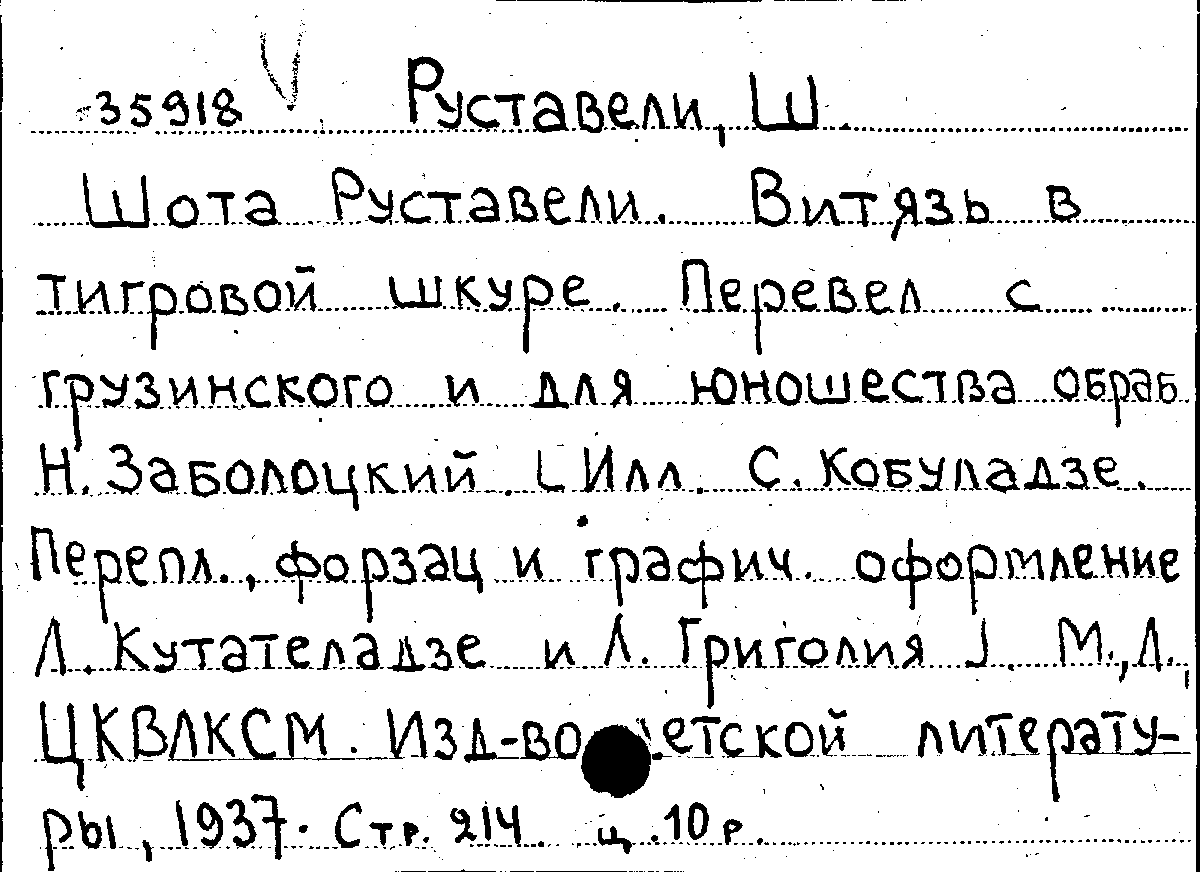 35918 Руставели, Ш.
Шота Руставели. Витязь в
тигровой шкуре. Перевел с
грузинского и для юношества обраб
Н. Заболоцкий. [Илл. С. Кобуладзе.
Перепл., форзац и графич. оформление
Л. Кутателадзе и Л. Григолия]. М.,Л.,
ЦКВЛКСМ. Изд-во детской литерату-
ры, 1937. Стр. 214. ц. 10 р.